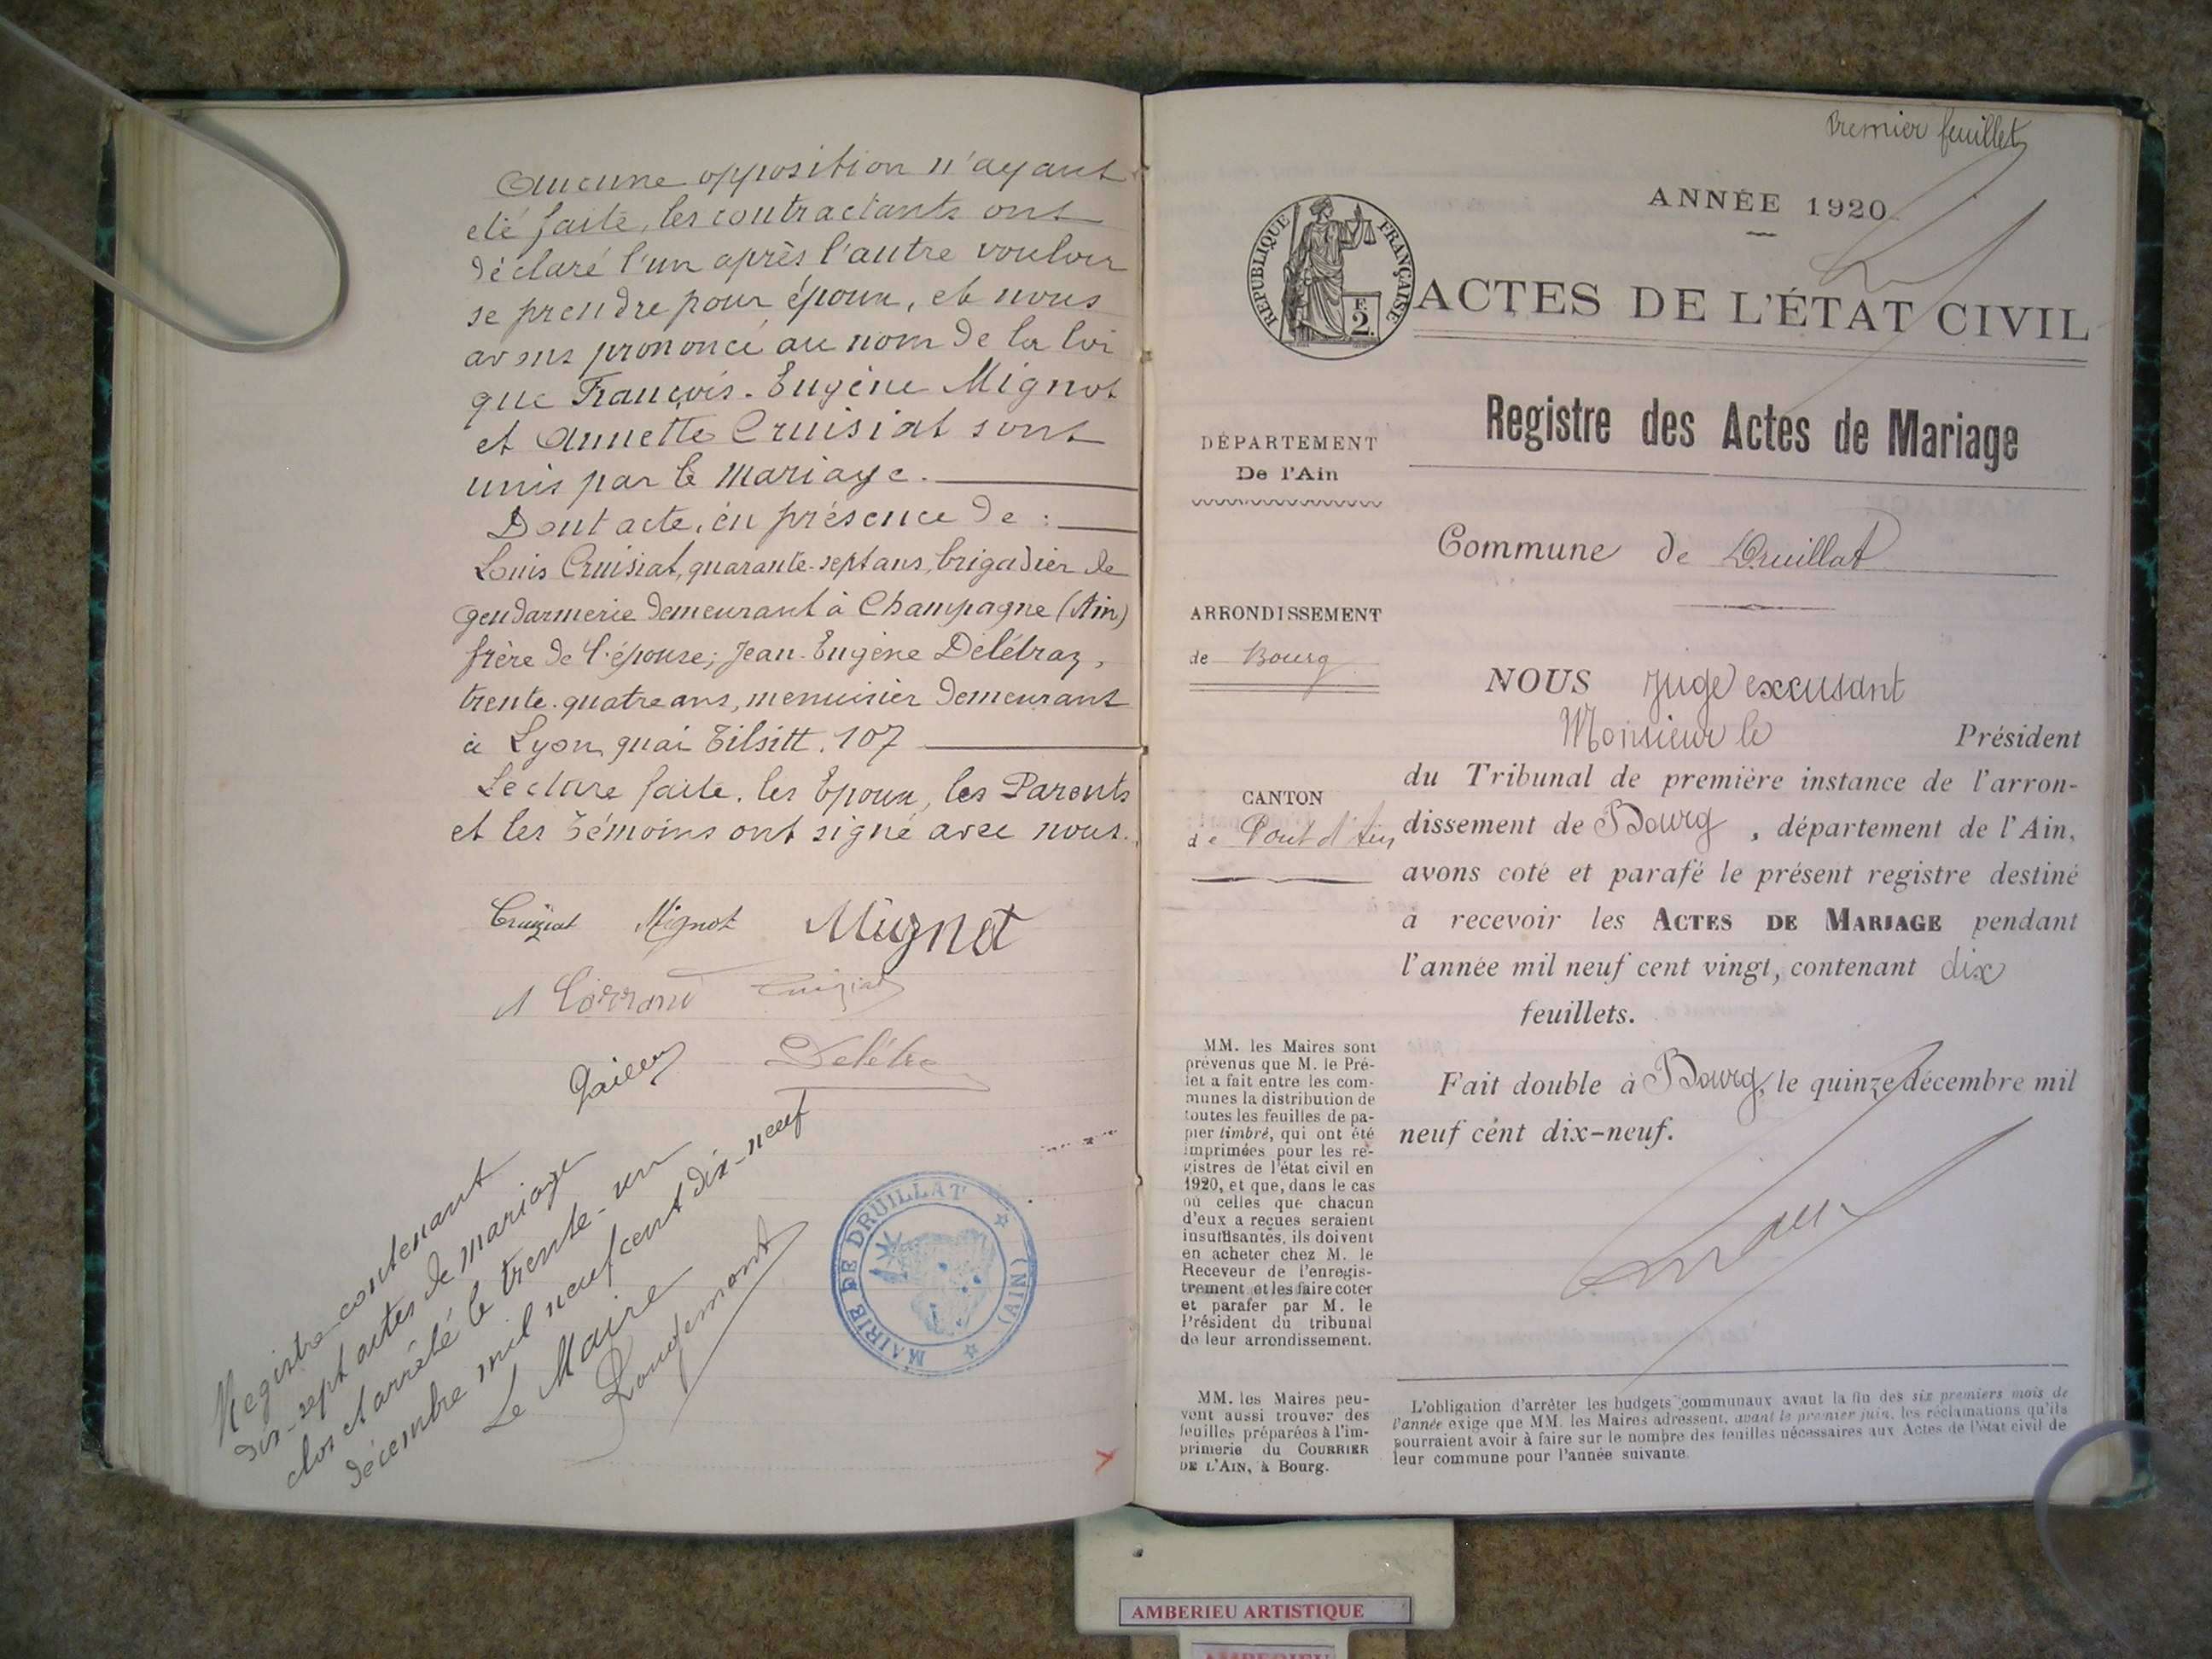 Aucune opposition n'ayant
été faite, les contractants ont
déclaré l'un après l'autre vouloir
se prendre pour époux, et nous
avons prononcé au nom de la loi
que François-Eugène Mignot
et Annette Cruisiat sont
unis par le mariage.
Dont acte, en présence de :
Louis Cruisiat, quarante-sept ans, brigadier de
gendarmerie demeurant à Champagne (Ain)
frère de l'épouse; Jean-Eugène Delétraz,
trente-quatre ans, menuisier demeurant
à Lyon, quai Tilsitt, 107
Lecture faite, les Epoux, les Parents
et les Témoins ont signé avec nous.
Cruiziat Mignot Mignot
Delétra
Registre contenant
dix-sept actes de mariage
clos et arrêté le trente-un
décembre mil neuf cent dix-neuf
Le Maire
MAIRIE DE DRUILLAT (AIN)
Premier feuillet
ANNÉE 1920
RÉPUBLIQUE FRANÇAISE
F.
2.
ACTES DE L'ÉTAT CIVIL
Registre des Actes de Mariage
DÉPARTEMENT
De l'Ain
Commune de Druillat
ARRONDISSEMENT
de Bourg
CANTON
de Pont d'Ain
NOUS Juge excusant
Monsieur le Président
du Tribunal de première instance de l'arron-
dissement de Bourg, département de l'Ain,
avons coté et parafé le présent registre destiné
à recevoir les ACTES DE MARIAGE pendant
l'année mil neuf cent vingt, contenant dix
feuillets.
Fait double à Bourg, le quinze décembre mil
neuf cent dix-neuf.
MM. les Maires sont
prévenus que M. le Pré-
fet a fait entre les com-
munes la distribution de
toutes les feuilles de pa-
pier timbré, qui ont été
imprimées pour les re-
gistres de l'état civil en
1920, et que, dans le cas
où celles que chacun
d'eux a reçues seraient
insuffisantes, ils doivent
en acheter chez M. le
Receveur de l'enregis-
trement et les faire coter
et parafer par M. le
Président du tribunal
de leur arrondissement.
MM. les Maires peu-
vent aussi trouver des
feuilles préparées à l'im-
primerie du COURRIER
DE L'AIN, à Bourg.
L'obligation d'arrêter les budgets communaux avant la fin des six premiers mois de
l'année exige que MM. les Maires adressent, avant le premier juin, les réclamations qu'ils
pourraient avoir à faire sur le nombre des feuilles nécessaires aux Actes de l'état civil de
leur commune pour l'année suivante.
AMBERIEU ARTISTIQUE
AMBERIEU